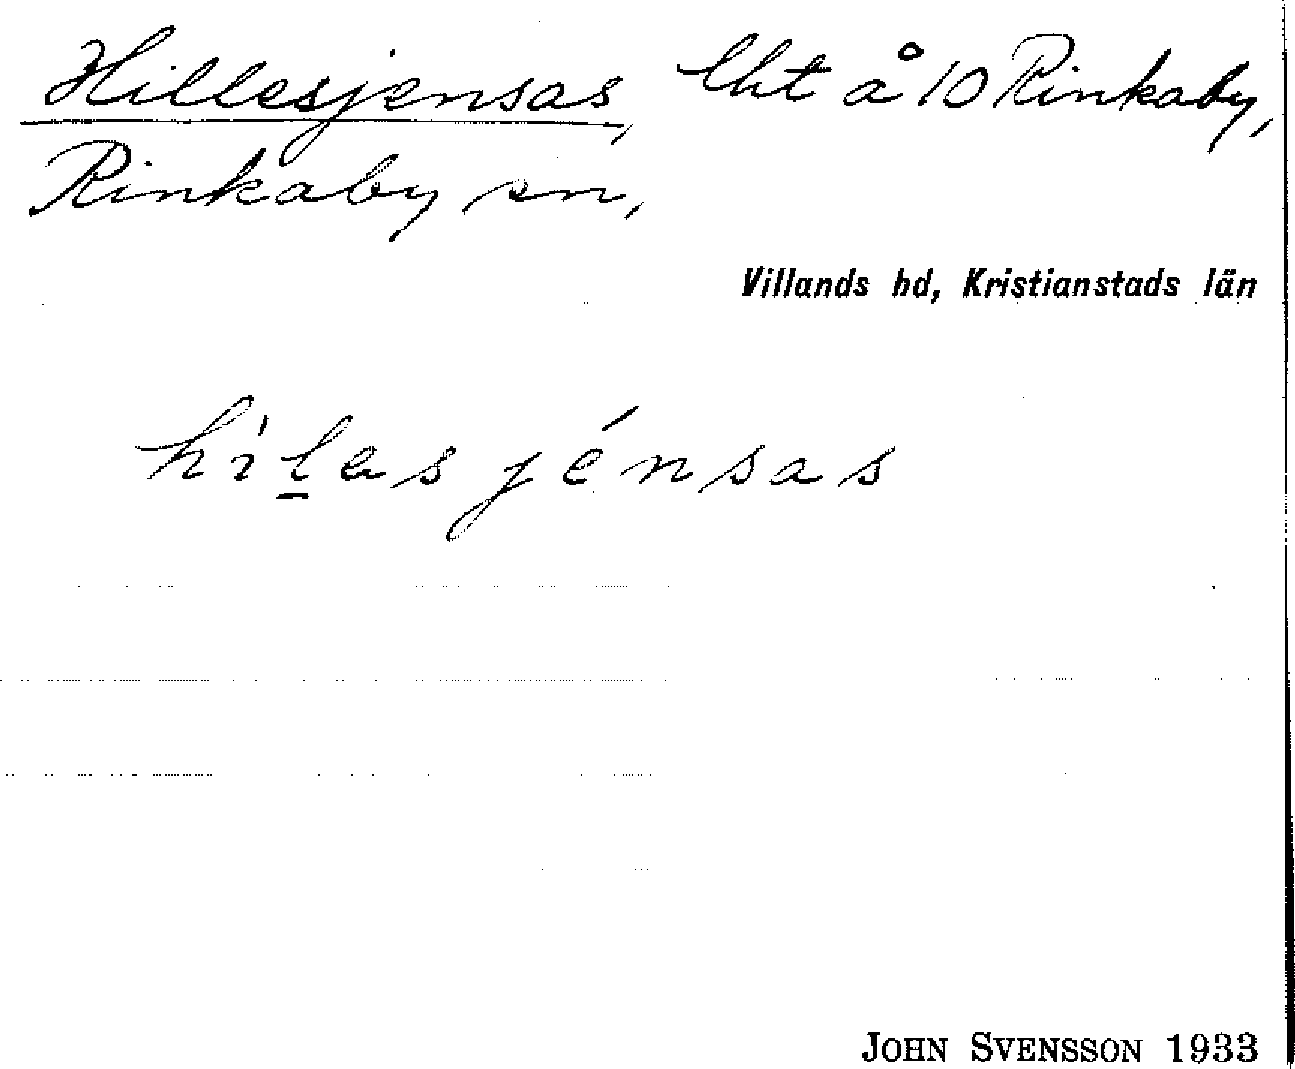 Hillesjensas, lht å 10 Rinkaby,
Rinkaby sn,
Villands hd, Kristianstads län
hìlas jénsas
JOHN SVENSSON 1933